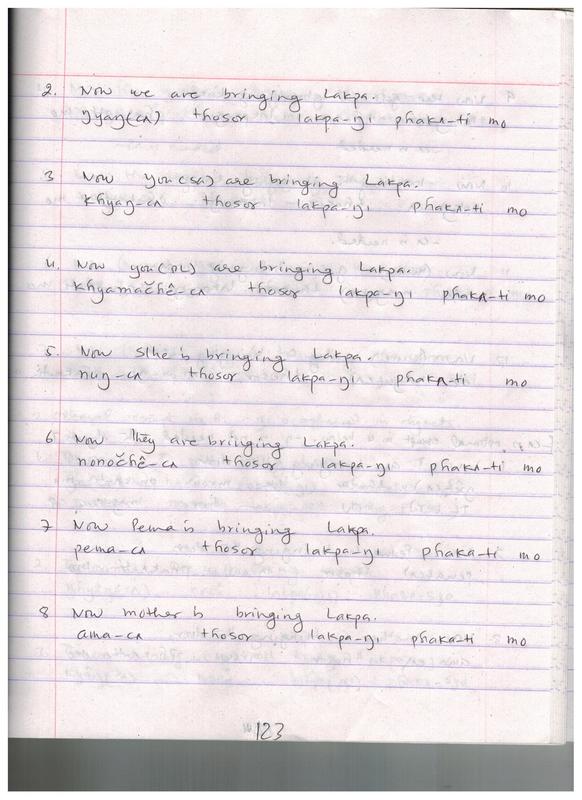 2. Now we are bringing Lakpa.
ŋyaŋ(cʌ) thosor lakpa-ŋı phakʌ-ti mo
3 Now you(sa) are bringing Lakpa.
khyaŋ-cʌ thosor lakpa-ŋı phakʌ-ti mo
4. Now you(PL) are bringing Lakpa.
khyamačhê-cʌ thosor lakpa-ŋı phakʌ-ti mo
5. Now s/he is bringing Lakpa.
nuŋ-cʌ thosor lakpa-ŋı phakʌ-ti mo
6 Now they are bringing Lakpa.
nonočhê-cʌ thosor lakpa-ŋı phakʌ-ti mo
7 Now Pema is bringing Lakpa.
pema-cʌ thosor lakpa-ŋı phaka-ti mo
8 Now mother is bringing Lakpa.
ama-cʌ thosor lakpa-ŋı phaka-ti mo
123